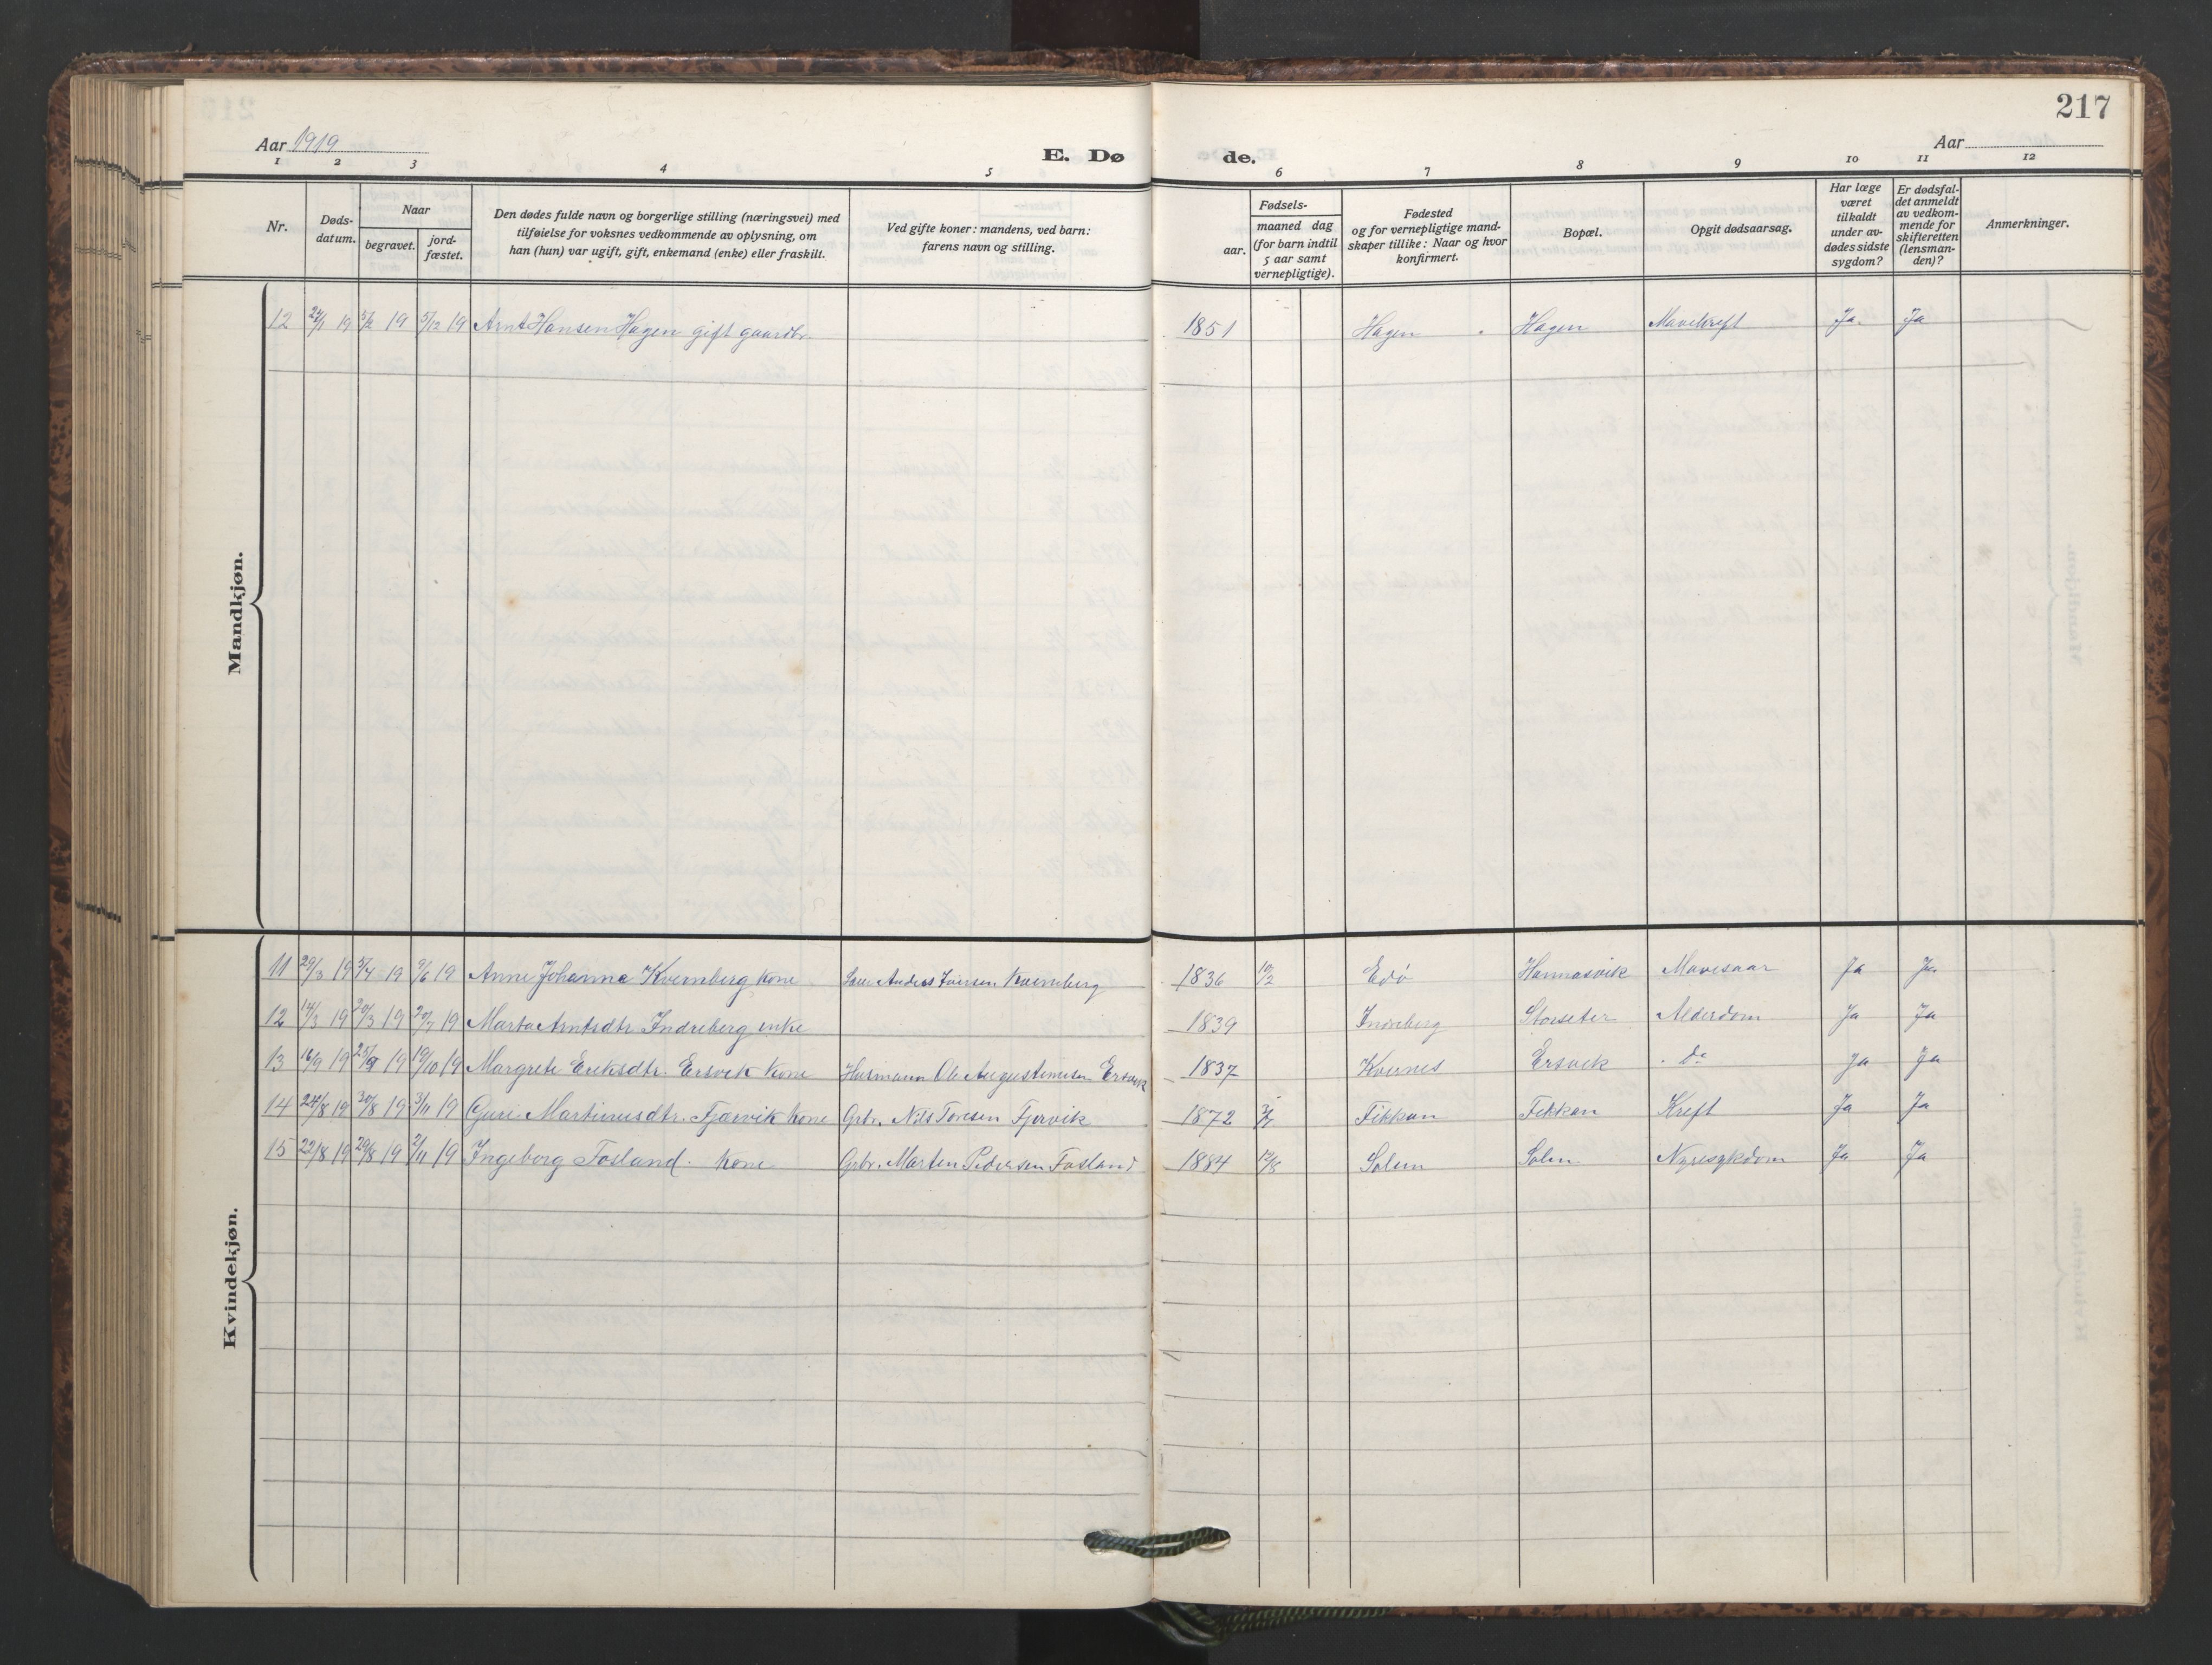 217
Aar 1919
E. Dø
de.
Aar
1 2 3 4 5 6 7 8 9 10 11 12
Nr.
Døds-
datum.
Naar
begravet.
jord-
fæstet.
Den dødes fulde navn og borgerlige stilling (næringsvei) med
tilføielse for voksnes vedkommende av oplysning, om
han (hun) var ugift, gift, enkemand (enke) eller fraskilt.
Ved gifte koner: mandens, ved barn:
farens navn og stilling.
Fødsels-
aar.
maaned dag
(for barn indtil
5 aar samt
vernepligtige).
Fødested
og for vernepligtige mand-
skaper tillike: Naar og hvor
konfirmert.
Bopæl.
Opgit dødsaarsag.
Har læge
været
tilkaldt
under av-
dødes sidste
sygdom?
Er dødsfal-
det anmeldt
av vedkom-
mende for
skifteretten
(lensman-
den)?
Anmerkninger.
Mandkjøn.
12 19 5/12 19 Arnt Hansen Hagen gift gaardbr. 1851 Hagen Hagen Mavekreft Ja. Ja
Kvindekjøn.
11 29/3 19 5/4 19 9/6 19 Anne Johanna Kvernberg kone Anders Iversen Kvernberg 1836 10/2 Edö Hannasvik Mavesaar Ja Ja
12 14/3 19 20/3 19 20/7 19 Marta Arntsdtr. Indreberg enke 1839 Indreberg Storseter Alderdom Ja Ja
13 16/9 19 25/9 19 19/10 19 Margrete Eriksdtr. Ersvik kone Husmann Ole Augustinusen Ersvik 1837 Kvernes Ersvik do Ja Ja
14 24/8 19 30/8 19 3/11 19 Guri Martinusdtr. Fjørvik kone Grbr. Nils Tonesen Fjørvik 1872 Fikkan Fikkan Kreft Ja Ja
15 22/8 19 29/8 19 2/11 19 Ingeborg Fosland. kone Grbr. Marten Pedersen Fosland 1884 12/8 Solem Solem Nyresykdom Ja Ja